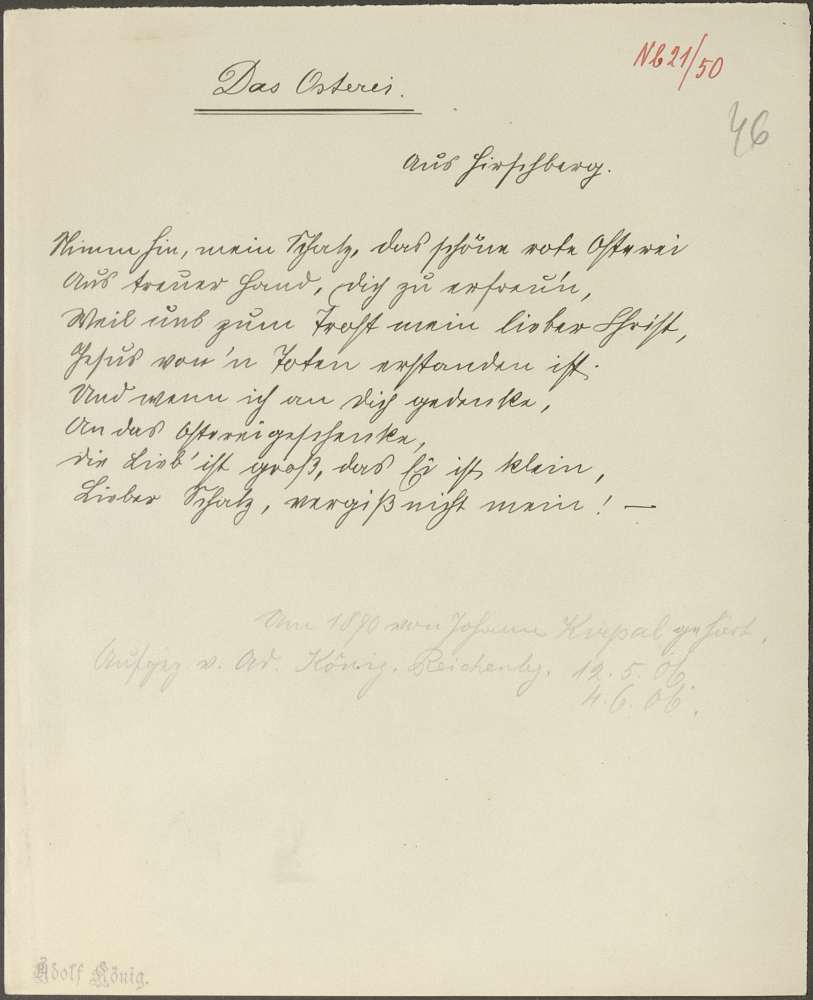 Das Osterei.
Nb 21/50
46
Aus Hirschberg.
Nimm hin, mein Schatz, das schöne rote Osterei
Aus treuer Hand, dich zu erfreu'n,
Weil uns zum Trost mein lieber Christ,
Jesus von'n Toten erstanden ist.
Und wenn ich an dich gedenke,
An das Ostereigeschenke,
Die Lieb' ist groß, das Ei ist klein,
Lieber Schatz, vergiß nicht mein! —
Um 1870 von Johann Kirpal gehört.
Aufgez v. Ad. König. Reichenbg. 12. 5. 06
4. 6. 06.
Adolf König.